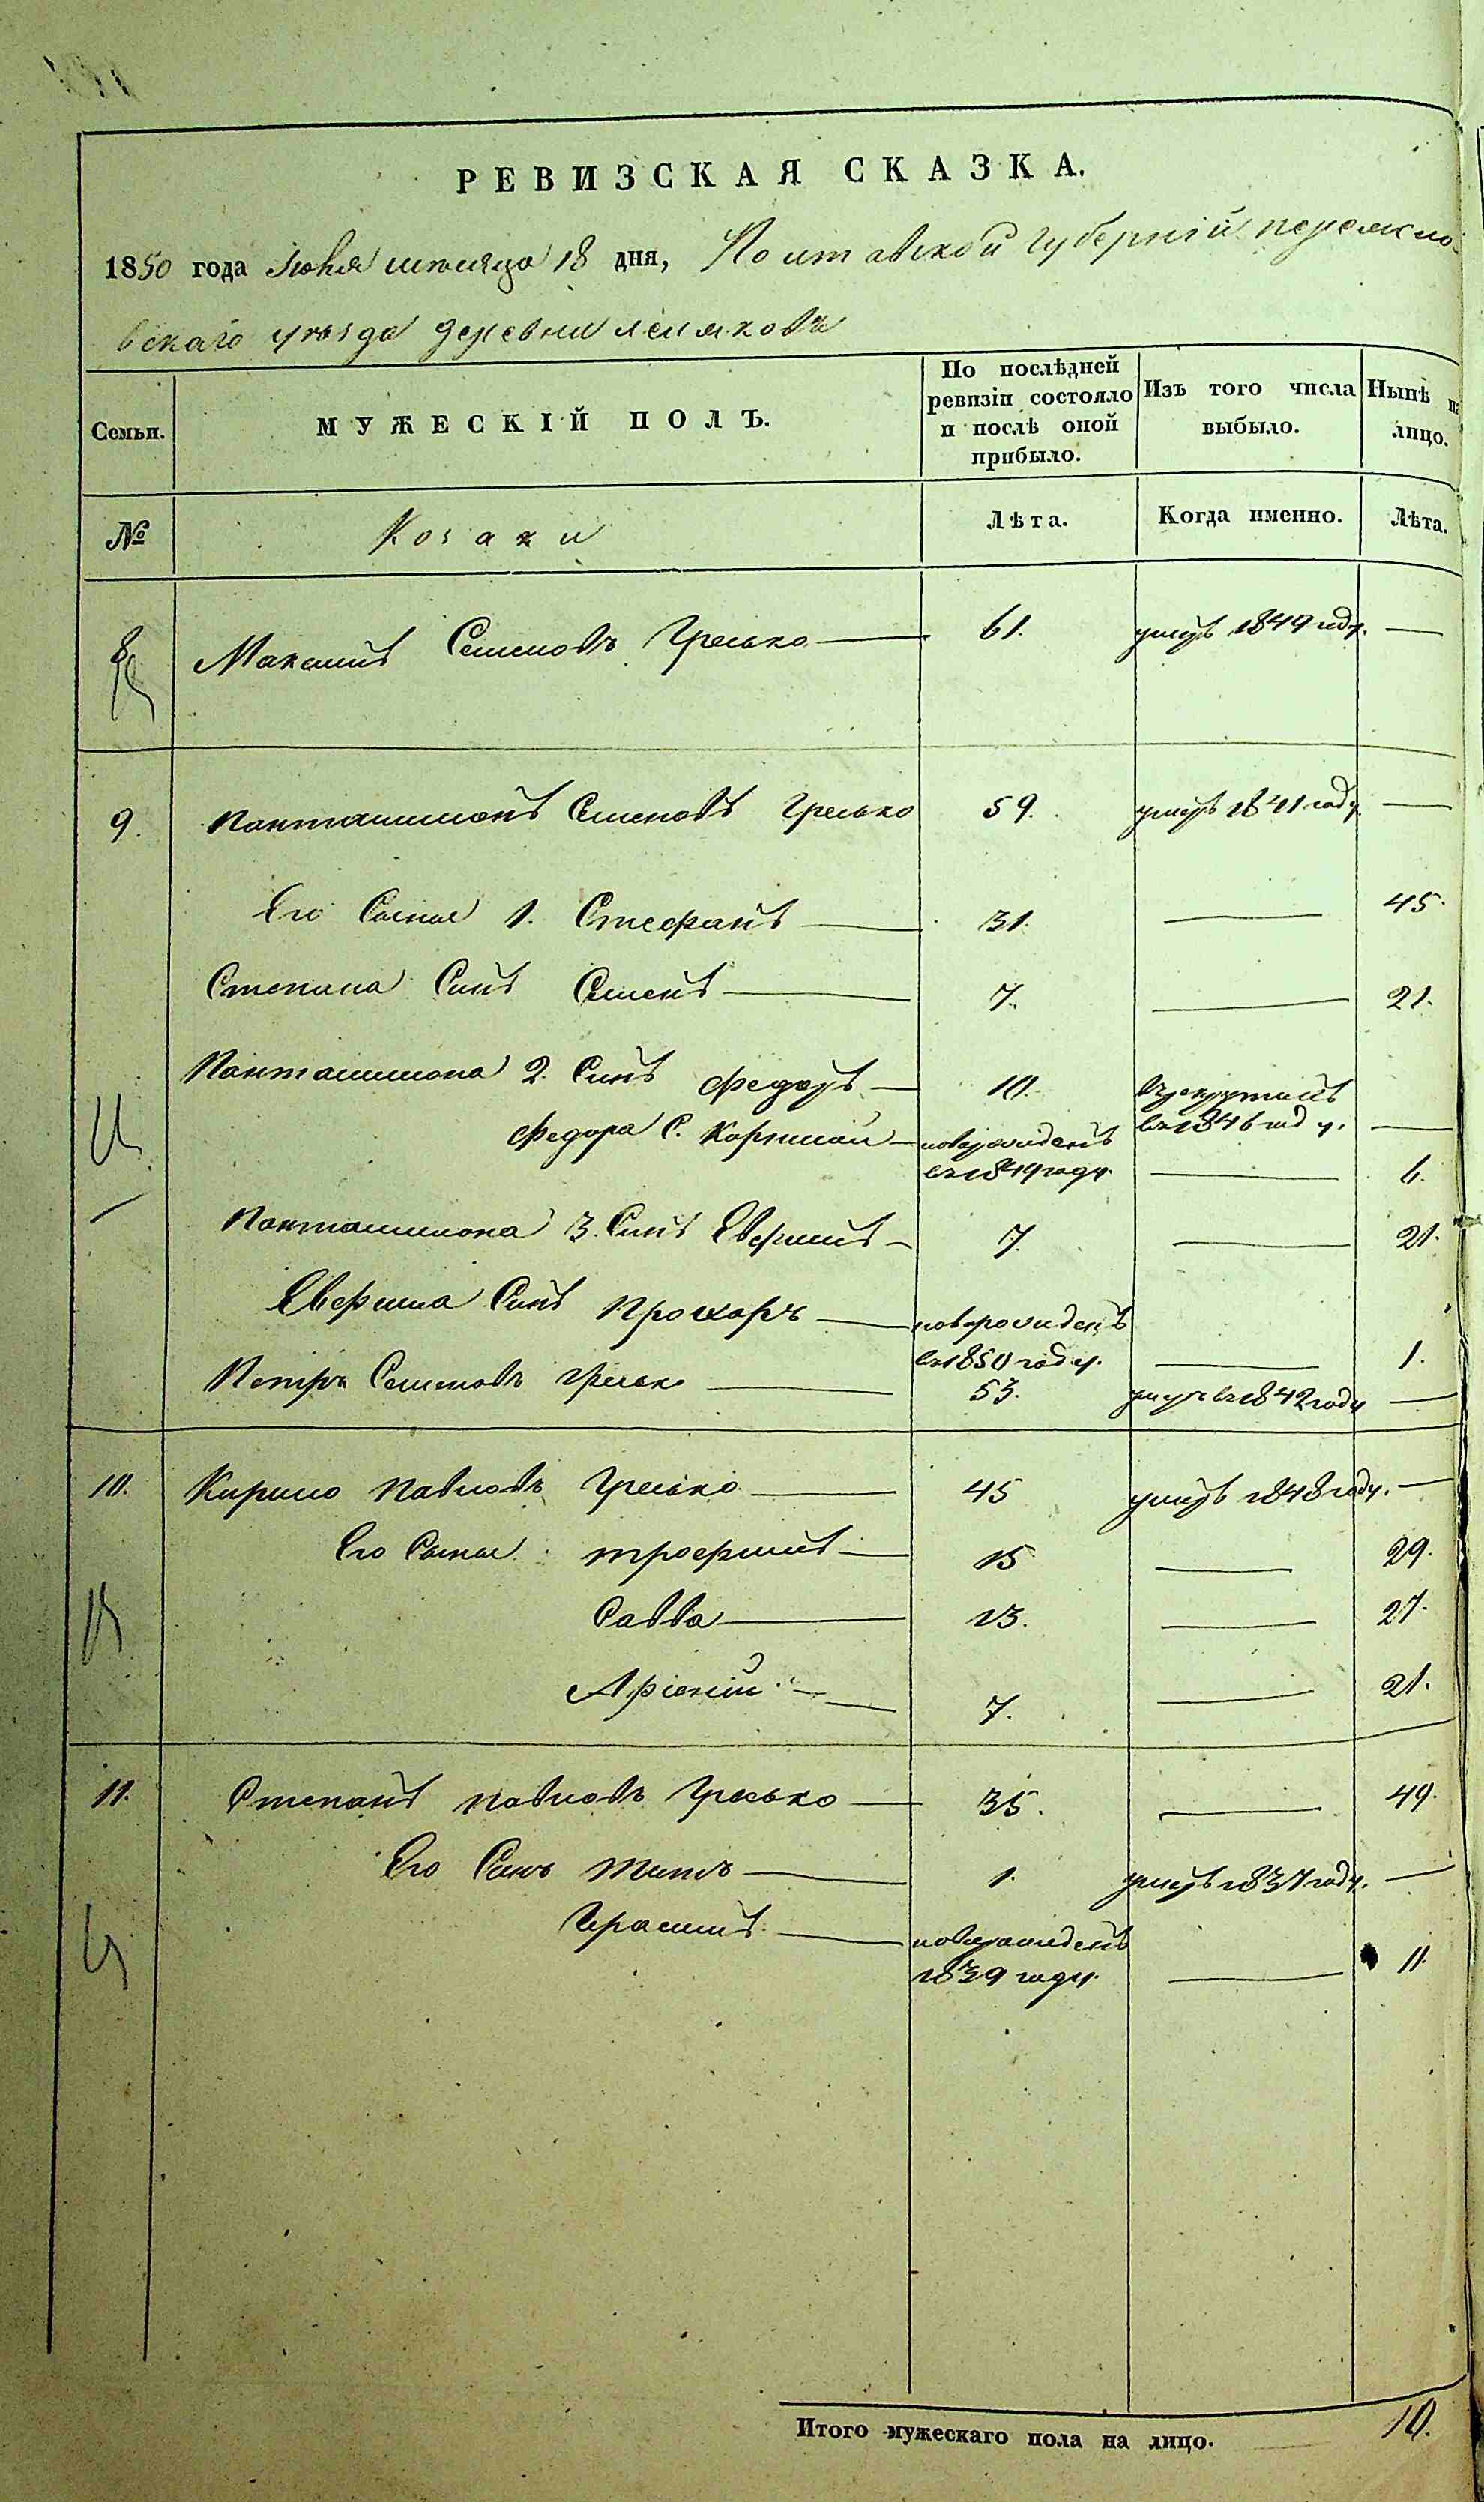 РЕВИЗСКАЯ СКАЗКА.
1850 года Июня мѣсяца 18 дня, Полтавской губерніи переясло
вскаго уѣзда деревни
Семьи. МУЖЕСКІЙ ПОЛЪ. По послѣдней ревизіи состояло и послѣ оной прибыло. Изъ того числа выбыло. Нынѣ на лицо.
№ Козаки Лѣта. Когда именно. Лѣта.
8 Максимъ Семеновъ Гресько 61. умеръ 1849 году.
9. Пантелимонъ Семеновъ Гресько 59. умеръ 1841 году
Его Сынъе 1. Стефанъ 31. 45.
Степана Синъ Семенъ 7. 21.
Пантелимона 2. Синъ Федоръ 10. въ рекрутахъ
въ 1846 году.
Федора С. новорожденъ
въ 1849 году. 6.
Пантелимона 3. Синъ Евфимъ 7. 21.
Евфима Синъ Прохоръ новорожденъ
въ 1850 году. 1.
Петръ Семеновъ Гресько 53. умеръ въ 1842 году
10. Кирило Павловъ Гресько 45 умеръ 1848 году.
Его Сынъе трофимъ 15 29.
Савва 13. 27.
Арсеній 7. 21.
11. Степанъ Павловъ Гресько 35. 49.
Его Синъ Титъ 1. умеръ 1837 году.
Герасимъ новорожденъ
1839 году. 11.
Итого мужескаго пола на лицо. 10.